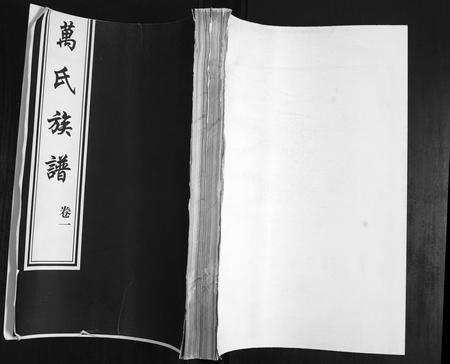 萬氏族譜
卷一